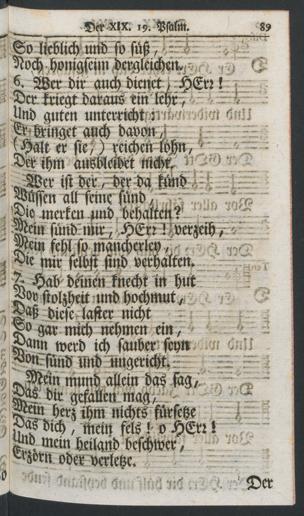 Der XIX. 19. Psalm. 89
So lieblich und so süß,
Noch honigseim dergleichen.
6. Wer dir auch dienet, HErr!
Der kriegt daraus ein lehr,
Und guten unterricht;
Er bringet auch davon
(Halt er sie) reichen lohn,
Der ihm ausbleibet nicht.
Wer ist der, der da künd
Wüssen all seine sünd
Die merken und behalten?
Mein sünd mir, HErr! verzeih,
Mein fehl so mancherley,
Die mir selbst sind verhalten.
7. Hab deinen knecht in hut
Vor stolzheit und hochmut,
Daß diese laster nicht
So gar mich nehmen ein,
Dann werd ich sauber seyn
Von sünd und ungericht.
Mein mund allein das sag,
Das dir gefallen mag,
Mein herz ihm nichts fürsetze
Das dich, mein fels! o HErr!
Und mein heiland beschwer,
Erzörn oder verletze.
Der